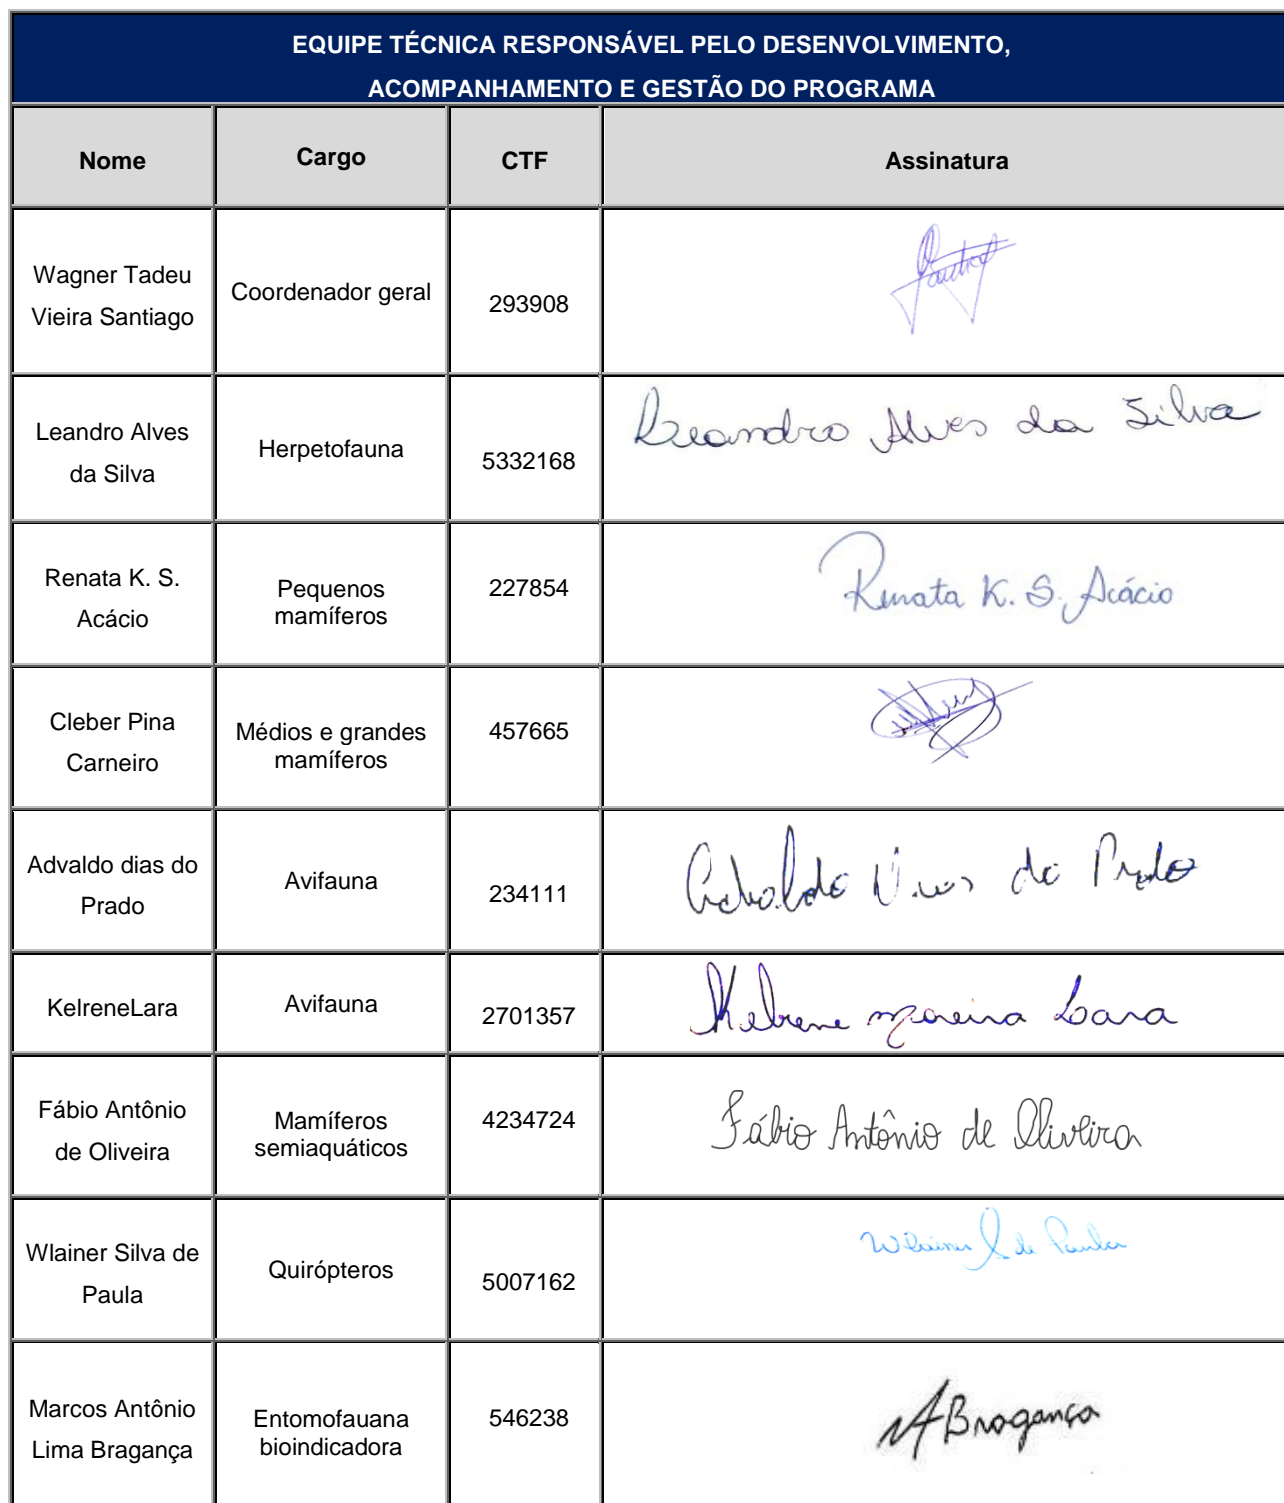 EQUIPE TÉCNICA RESPONSÁVEL PELO DESENVOLVIMENTO,
ACOMPANHAMENTO E GESTÃO DO PROGRAMA
Nome Cargo CTF Assinatura
Wagner Tadeu
Vieira Santiago
Coordenador geral
293908
Leandro Alves
da Silva
Herpetofauna
5332168
Leandro Alves da Silva
Renata K. S.
Acácio
Pequenos
mamíferos
227854
Renata K. S. Acácio
Cleber Pina
Carneiro
Médios e grandes
mamíferos
457665
Advaldo dias do
Prado
Avifauna
234111
Advaldo Dias do Prado
KelreneLara
Avifauna
2701357
Kelrene Moreira Lara
Fábio Antônio
de Oliveira
Mamíferos
semiaquáticos
4234724
Fábio Antônio de Oliveira
Wlainer Silva de
Paula
Quirópteros
5007162
Wlainer S de Paula
Marcos Antônio
Lima Bragança
Entomofauana
bioindicadora
546238
MABragança